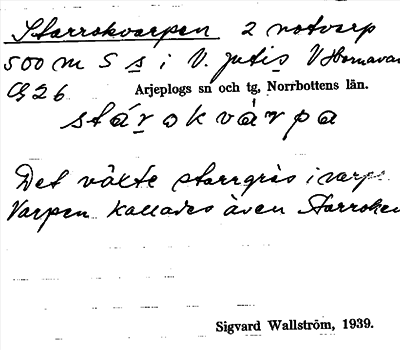 Starrokvarpen 2 notvarp
500 m S s i V. jutis V Hornavan
G 26
Arjeplogs sn och tg, Norrbottens län.
stárokvárpa
Det växte starrgräs i varpe
Varpen kallades även Starroken
Sigvard Wallström, 1939.